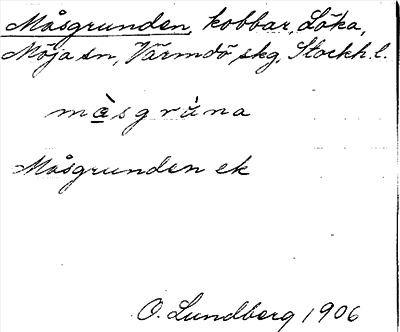 Måsgrunden, kobbar, Löka,
Möja sn, Värmdö skg, Stockh. l.
mà̱sgrùna
Måsgrunden ek
O. Lundberg 1906